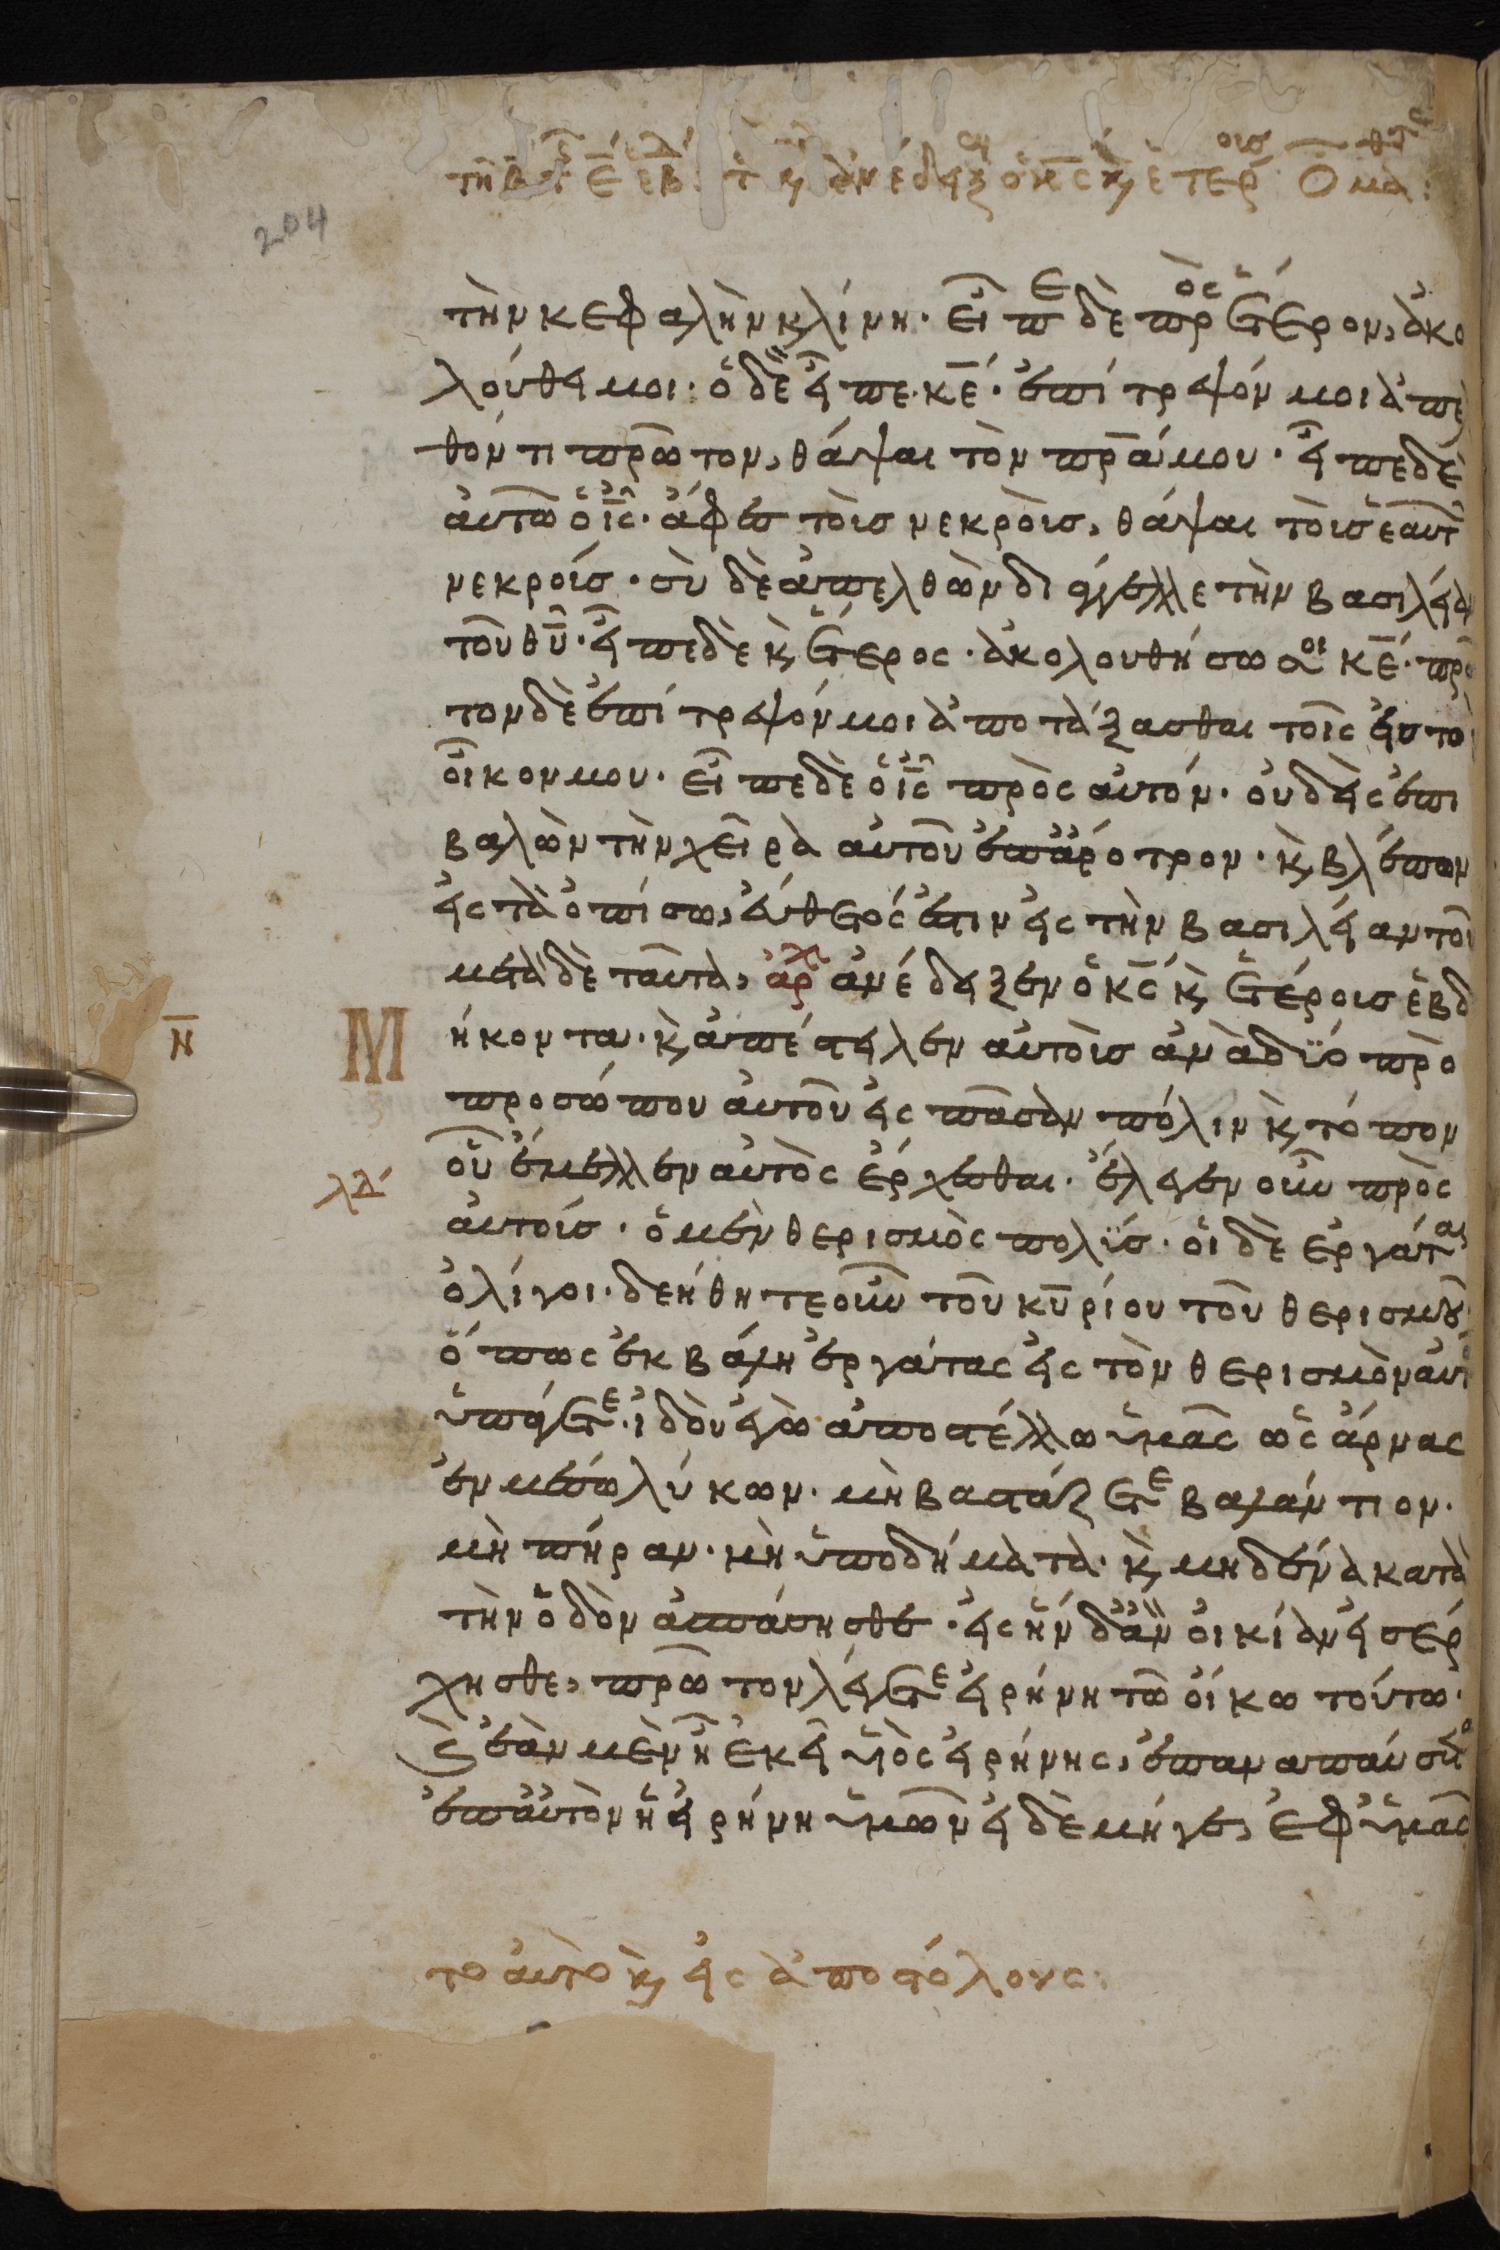 204
τὴν κεφαλὴν κλίνη. εἶπε δὲ πρὸς ἕτερον, ἀκο
λούθει μοι. ὁ δὲ εἶπε. κε̅. ἐπίτρεψόν μοι ἀπελ
θόντι πρῶτον, θάψαι τὸν πρ̅α μου. εἶπε δὲ
αὐτῶ ὁ ις̅. ἄφες τοὺς νεκροὺς, θάψαι τοὺς ἑαυτ
νεκρούς. σὺ δὲ ἀπελθὼν διάγγελλε τὴν βασιλείαν
τοῦ θυ̅. εἶπε δὲ κ ἕτερος. ἀκολουθήσω σοι κε̅. πρῶ
τον δὲ ἐπίτρεψόν μοι ἀποτάξασθαι τοῖς εἰς το
οἶκον μου. εἶπε δὲ ὁ ις̅ πρὸς αὐτόν. οὐδεὶς ἐπι
βαλὼν τὴν χεῖρα αὐτοῦ ἐπ ἄροτρον. κ βλέπων
εἰς τὰ ὀπίσω, εὔθετός ἐστιν εἰς τὴν βασιλείαν τοῦ
μετὰ δὲ ταῦτα, ἀρχ ἀνέδειξεν ὁ κς̅ κ ἑτέρους ἑβδ
ήκοντα. κ ἀπέστειλεν αὐτοὺς ἀνὰ δύο πρὸ
Ν̅ Μ
προσώπου αὐτοῦ εἰς πᾶσαν πόλιν κ τόπον
οὗ ἔμελλεν αὐτὸς ἔρχεσθαι. ἔλεγεν οὖν πρὸς
λδ
αὐτούς. ὁ μὲν θερισμὸς πολύς. οἱ δὲ ἐργάται
ὀλίγοι. δεήθητε οὖν τοῦ κυρίου τοῦ θερισμοῦ
ὅπως ἐκβάλη ἐργάτας εἰς τὸν θερισμὸν αὐτ
ὑπάγετε. ἰδοὺ ἐγὼ ἀποστέλλω ὑμᾶς ὡς ἄρνας
ἐν μέσω λύκων. μὴ βαστάζετε βαλάντιον.
μὴ πήραν. μὴ ὑποδήματα. κ μηδένα κατὰ
τὴν ὁδὸν ἀσπάσησθε. εἰς ἣν δ ἂν οἰκίαν εἰσέρ
χησθε, πρῶτον λέγετε εἰρήνη τῶ οἴκω τούτω.
κ ἐὰν μὲν ἦ ἐκεῖ υἱὸς εἰρήνης, ἐπαναπαύσετ
ἐπ αὐτὸν ἡ εἰρήνη ὑμῶν εἰ δὲ μήγε, ἐφ ὑμᾶς
το αὐτὸ κ εἰς ἀποστόλους: